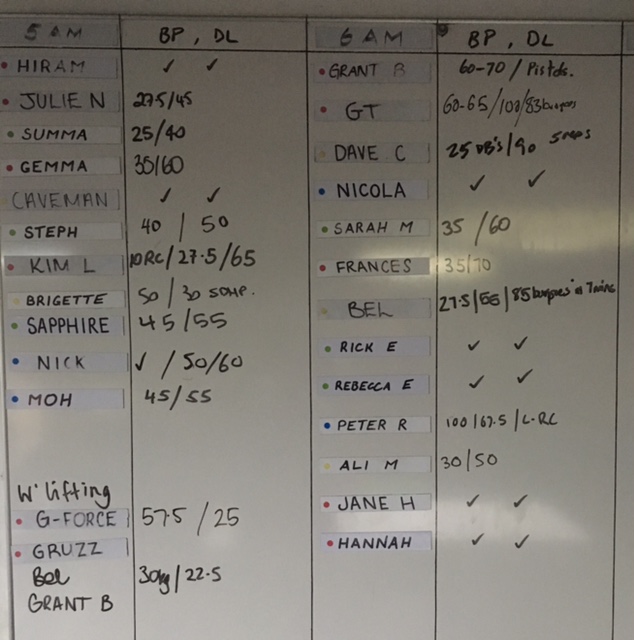 5 AM BP, DL
HIRAM ✓ ✓
JULIE N 27.5/45
SUMMA 25/40
GEMMA 35/60
CAVEMAN ✓ ✓
STEPH 40 / 50
KIM L 10RC/27.5/65
BRIGETTE 50 / 30
SAPPHIRE 45/55
NICK ✓ / 50/60
MOH 45/55
W'lifting
G-FORCE 57.5 / 25
GRUZZ
Bel 30kg/22.5
GRANT B
6 AM BP, DL
GRANT B 60-70 / Pistols.
GT 60-65/100/83 burpees
DAVE C 25 DB's/90
NICOLA ✓ ✓
SARAH M 35 / 60
FRANCES 35/70
BEL 27.5/55/85 burpees in 7 mins
RICK E ✓ ✓
REBECCA E ✓ ✓
PETER R 100/67.5/L-RC
ALI M 30/50
JANE H ✓ ✓
HANNAH ✓ ✓